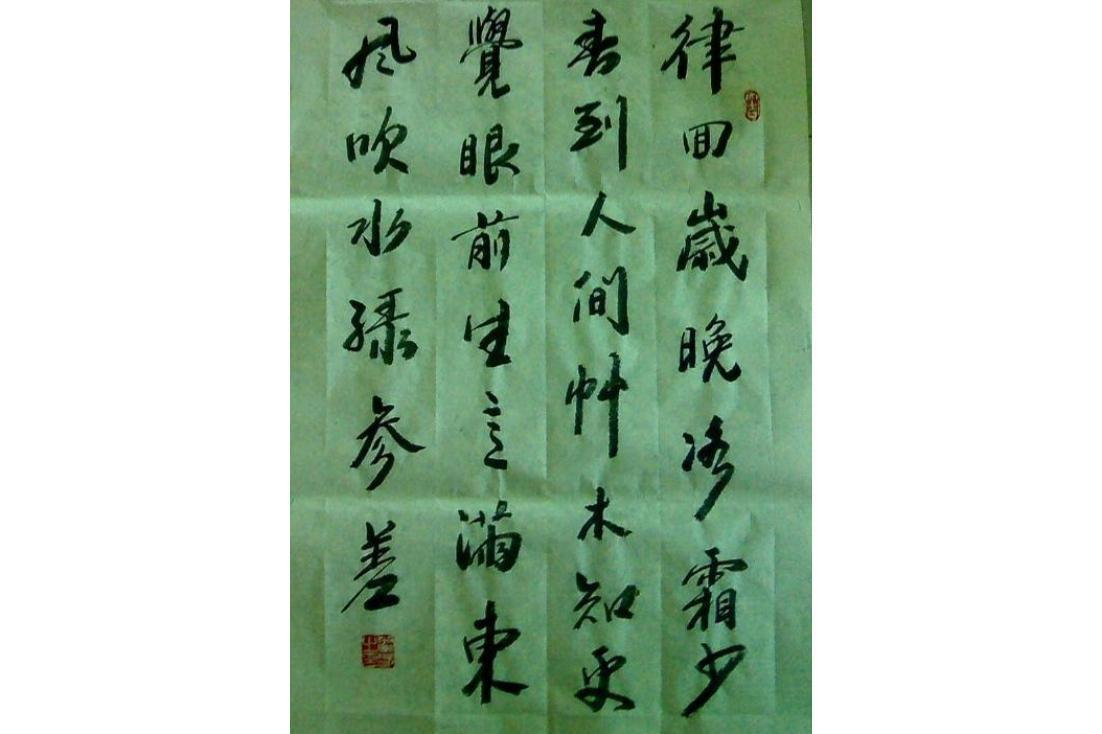 律回歲晚霜少
春到人間艸木知更
覺眼前生意滿東
風吹水綠參差